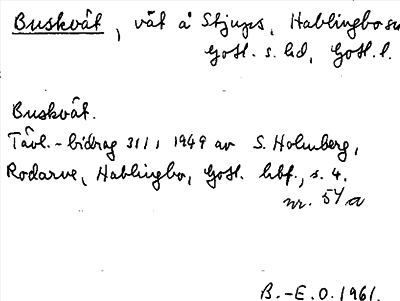 Buskvät, vät å Stjups, Hablingbo sn
Gotl. s. hd, Gotl. l.
Buskvät.
Tävl.-bidrag 31/1 1949 av S. Holmberg,
Rodarve, Hablingbo, Gotl. hbf., s. 4.
nr. 54a
B.-E.O. 1961.